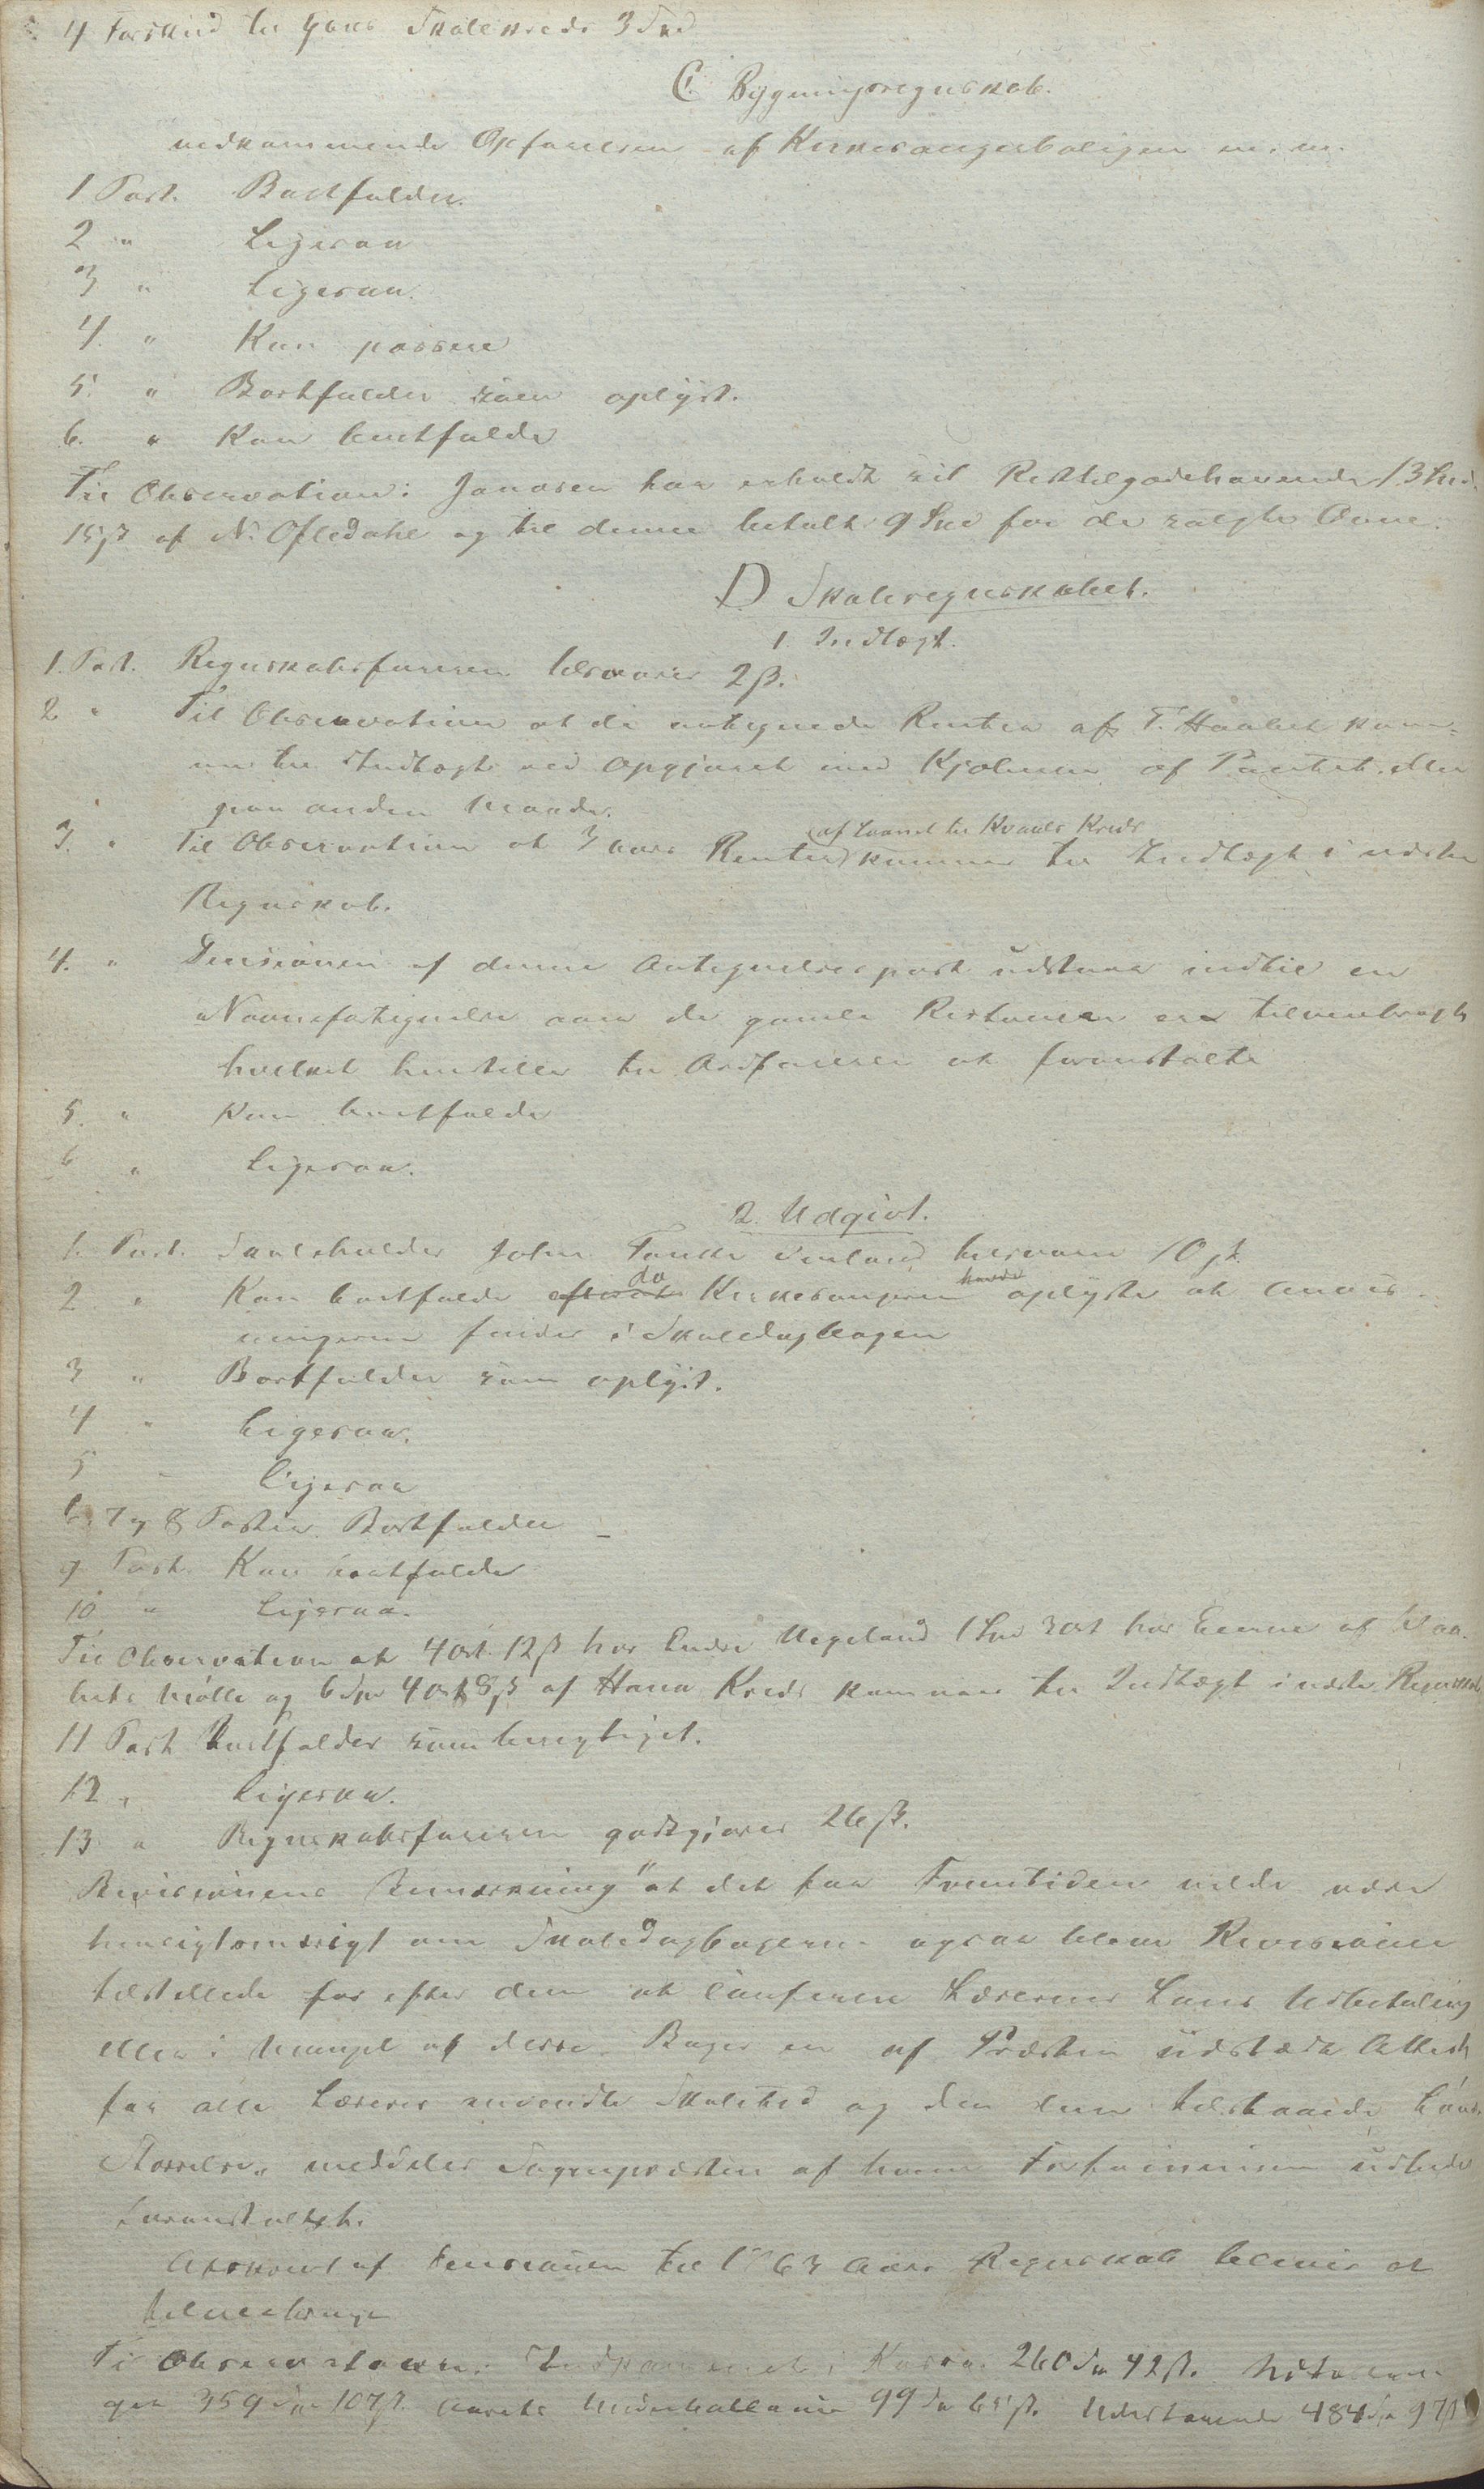 4 Forskud til Skolekreds 3 Spd
C Bygningsregnskab.
vedkommende Opførelsen af Kirkesangerboligen m. m.
1 Post. Bortfalder.
2 " Ligesaa
3 " Ligesaa.
4. " Kan passere
5. " Bortfalder som oplyst.
6. " Kan bortfalde
Til Observation: Janosen har erholdt sit Resttilgodehavende 13 Spd.
15 ß af N. Ofledahl og til denne betalt 9 Spd for de solgte Ovne.
D Skoleregnskabet.
1. Indtægt.
1. Post. Regnskabsføreren tilsvarer 2 ß.
2 " Til Observation at de antegnede Renter af T. Haabet kom-
me til Indtægt ved Opgjøret med Kjøberen af Pantet eller
paa anden Maade.
3. " Til Observation at 3 aars Renter (af Laanet til Kvaals Kreds) kommer til Indtægt i næste
Regnskab.
4. " Decisionen af denne Antegnelsespost udstaar indtil en
Navnefortegnelse over de gamle Restancer er tilveiebragt
hvilket henstilles til Ordføreren at foranstalte
5. " Kan bortfalde
6 " Ligesaa.
2. Udgivt.
1. Post. Skoleholder John Tande tilsvarer 10 ß.
2 " Kan bortfalde efterat da Kirkesangeren havde oplyste at Anvis-
ningerne findes i Skoledagbogen
3 " Bortfalder som oplyst.
4 " Ligesaa.
5 " Ligesaa
6. 7 og 8 Poster Bortfalder
9 Post. Kan bortfalde
10 " Ligesaa.
Til Observation at 4 ort. 12 ß hos Endre Uegeland 1 Spd 3 ort hos Eierne af Vaa-
bets Mølle og 6 Spd 4 ort 8 ß af Hana Kreds kommer til Indtægt i næste Regnskab
11 Post Bortfalder som berigtiget.
12 " Ligesaa.
13 " Regnskabsføreren godtgjøres 26 ß.
Revisionens Bemærkning "at det for Fremtiden vilde være
hensigtsmæssigt om Skoledagbøgerne ogsaa bleve Revisionen
tilstillede for efter dem at conferere Lærernes Løns Udbetaling
eller i Mangel af disse Bøger en af Præsten udstædt Attest
for alle Læreres anvendte Skoletid og den dem tilstaaede Løns
Størrelse" meddeles Sognepræsten af hvem Fornødne udbedes
foranstaltet.
Afskrivt af Decisionen til 1863 Aars Regnskab bliver at
tilveiebringe
Til Observation: Indkommet i Kassa 260 Spd 42 ß. Udta
get 359 Spd 107 ß. Aarets Underballance 99 Spd 65 ß. Udestaaende 484 Spd 97 ß